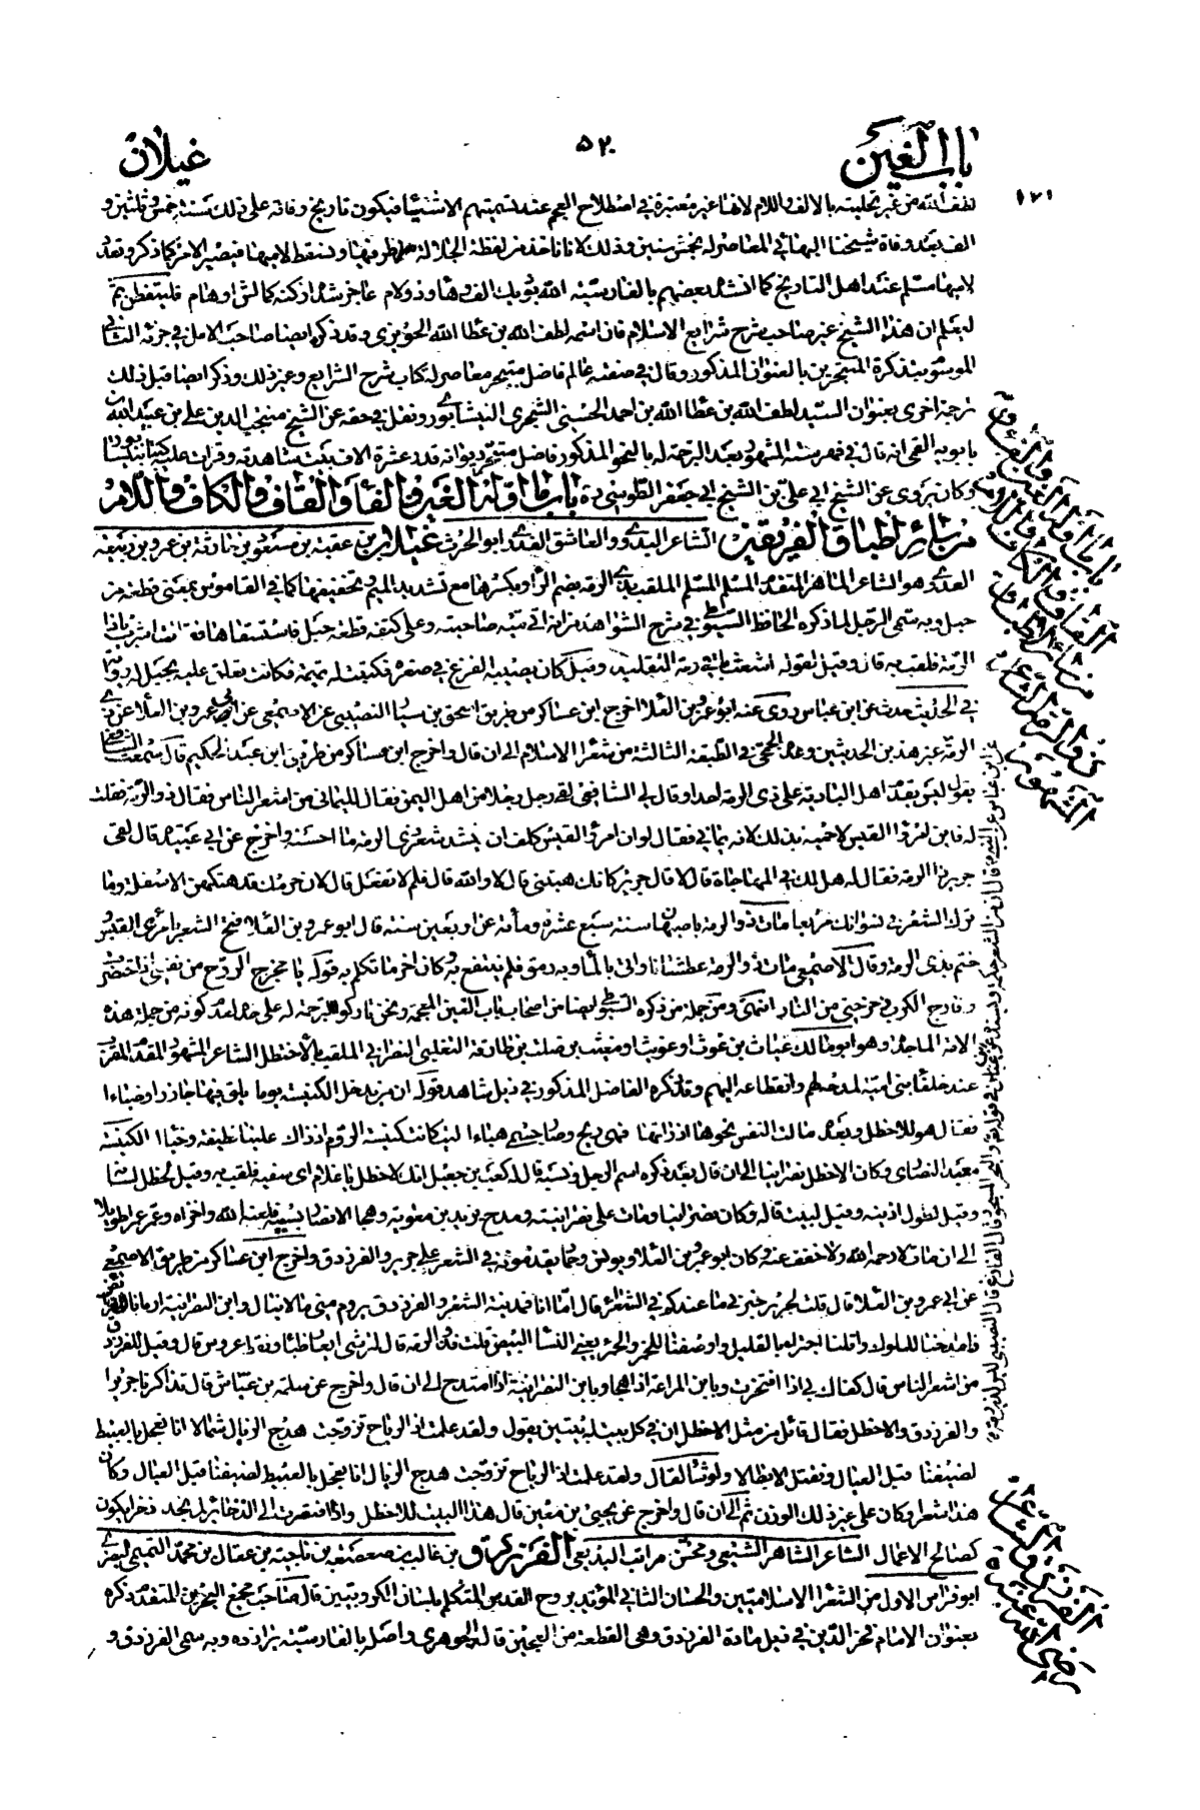 باب الغين
۵۲۰
غيلان
لطف الله من غير تحليته بالالف واللام لانها غير معتبرة في اصطلاح العجم عند تسميتهم الاشياء فيكون تاريخ وفاته على ذلك سنة خمس وثلثين و
الف بعد وفاة شيخنا البهائي المعاصر له بخمس سنين وذلك لانا ناخذ من لفظة الجلالة ونسقط لامها فيصير الامر كما ذكر وقد
لامها مسلم عند اهل التاريخ كما انشد بعضهم بالفارسية الله بويك الف وها ودولام عاجز شد از كنه كمالش اوهام فليتفطن ثم
ليعلم ان هذا الشيخ غير صاحب شرح شرايع الاسلام فان اسمه لطف الله بن عطاء الله الحويزي وقد ذكره ايضا صاحب الامل في جزئه الثاني
الموسوم بتذكرة المتبحرين بالعنوان المذكور وقال في صفته عالم فاضل متبحر معاصر له كتاب شرح الشرايع وغير ذلك وذكر ايضا قبل ذلك
ترجمة اخرى بعنوان السيد لطف الله بن عطاء الله بن احمد الحسني الشجري النيشابوري ونقل في حقه عن الشيخ منتجب الدين علي بن عبيد الله بن
بابويه القمي انه قال في فهرسته المشهور بعد الترجمة له بالنحو المذكور فاضل متبحر ديوانه قدر عشرة الاف بيت شاهدته وقرات عليه كتبا بنيسابور
وكان يروى عن الشيخ ابي علي بن الشيخ ابي جعفر الطوسي ره باب ما اوله الغين والفاء والقاف والكاف واللام
من سائر اطباق الفريقين الشاعر البدوي والعاشق العذري ابو الحرث غيلان بن عقبة بن مسعود بن حارثة بن عمرو بن ربيعة
العدوي هو الشاعر الماهر المتقدم المسلم المسلم الملقب بذي الرمة بضم الراء وبكسرها مع تشديد الميم وتخفيفها كما في القاموس بمعنى قطعة من
حبل وبه سمي الرجل لما ذكره الحافظ السيوطي في شرح الشواهد من انه اتى مية صاحبته وعلى كتفه قطعة حبل فاستسقاها فقالت اشرب ياذا
الرمة فلقب به قال وقيل لقوله اشعث باقي رمة التقليد وقيل كان يصيبه الفزع في صغره فكتبت له تميمة فكانت تعلق عليه بحبل
في الحديث حدث عن ابن عباس روى عنه ابو عمرو بن العلاء اخرج ابن عساكر من طريق اسحق بن سيار النصيبي عن الاصمعي عن ابي عمرو بن العلاء عن ذي
الرمة غير هذين الحديثين وعده الجمحي في الطبقة الثالثة من شعراء الاسلام الى ان قال واخرج ابن عساكر من طريق ابن عبد الحكيم قال سمعت الشافعي
يقول ليس يقدم اهل البادية على ذي الرمة احدا وقال لي الشافعي لقي رجل رجلا من اهل اليمن فقال لليماني من اشعر الناس فقال ذو الرمة فقلت
له فاين امرؤ القيس لاحميه بذلك لانه يماني فقال لو ان امرؤ القيس كلف ان ينشد شعر ذي الرمة ما احسنه واخرج عن ابي عبيدة قال لقى
جرير ذا الرمة فقال له هل لك في المهاجاة قال لا قال جرير كانك هبتني قال لا والله قال فلم لا تفعل قال لان حرمك قد هتكهن الاسفلة وما
ترك الشعراء في نسوانك مرتعا مات ذو الرمة باصبهان سنة سبع عشرة ومأة عن اربعين سنة قال ابو عمرو بن العلاء فتح الشعر بامرئ القيس
ختم بذي الرمة وقال الاصمعي مات ذو الرمة عطشانا واتى بالماء وبه رمق فلم ينتفع به وكان اخر ما تكلم به قوله يا مخرج الروح من نفسي اذا احتضرت
وفارج الكرب زحزحني من النار انتهى ومن جملة من ذكره السيوطي ايضا من اصحاب باب الغين المعجمة ونحن تاركو الترجمة له على حدة لعدم كونه من جملة هذه
الامة الماجدة وهو ابو مالك غياث بن غوث او غويث او مغيث بن صلت بن طارقة التغلبي النصراني الملقب بالاخطل الشاعر المشهور المقدم المقرب
عند خلفاء بني امية لمدحه لهم وانقطاعه اليهم وقد ذكره الفاضل المذكور في ذيل شاهد قوله ان من يدخل الكنيسة يوما يلق فيها جاذرا وظباءا
فقال هو للاخطل وبعده مالت النفس نحوها اذ راتها فهي ريح وصار جسمي هباءا ليت كانت كنيسة الروم اذ ذاك علينا قطيفة وخباءا الكنيسة
معبد النصارى وكان الاخطل نصرانيا الى ان قال بعد ذكره اسم الرجل ونسبه قال له كعب بن جعيل انك لاخطل يا غلام اي سفيه فلقب به وقيل لخطل لسانه
وقيل لطول اذنيه وقيل لبيت قاله وكان نصرانيا ومات على نصرانيته ومدح يزيد بن معوية وهجا الانصار بسببه فلعنه الله واخزاه وعمر عمرا طويلا
الى ان مات لا رحمه الله ولا خفف عنه وكان ابو عمرو بن العلاء ويونس وحماد يقدمونه في الشعر على جرير والفرزدق واخرج ابن عساكر من طريق الاصمعي
عن ابي عمرو بن العلاء قال قلت لجرير خبرني ما عندكم في الشعراء قال اما انا فمدينة الشعر والفرزدق يروم مني ما لا ينال وابن النصرانية ارمانا للفرائض
وامدحنا للملوك واقلنا اجتراء بالقليل واوصفنا للخمر والحمر يعني النساء البيض قلت فذو الرمة قال ليس بشيء ابعار ظباء ونقط عروس قال وقيل للفرزدق
من اشعر الناس قال كفاك بي اذا افتخرت وبابن المراغة اذا هجا وبابن النصرانية اذا امتدح الى ان قال واخرج عن سلمة بن عياش قال تذاكرنا جريرا
والفرزدق والاخطل فقال قائل من مثل الاخطل ان في كل بيت له بيتين يقول ولقد علمت اذ الرياح تروحت هدج الرئال شمالا انا نعجل بالعبيط
لضيفنا قبل العيال ونقتل الابطالا ولو شاء لقال ولقد علمت اذ الرياح تروحت هدج الرئال انا نعجل بالعبيط لضيفنا قبل العيال وكان
هذا شعرا وكان على غير ذلك الوزن ثم الى ان قال واخرج عن يحيى بن معين قال هذا البيت للاخطل واذا افتقرت الى الذخائر لم تجد ذخرا يكون
كصالح الاعمال الشاعر الشاهر الشيعي ومحسن مراتب البديعي الفرزدق بن غالب بن صعصعة بن ناجية بن عقال بن محمد التميمي البصري
ابو فراس الاول من الشعراء الاسلاميين والحسان الثاني المؤيد بروح القدس المتكلم بلسان الكروبيين قال صاحب مجمع البحرين المتقدم ذكره
بعنوان الامام فخر الدين في ذيل مادة الفرزدق وهي القطعة من العجين قاله الجوهري واصله بالفارسية برازده وبه سمي الفرزدق و
باب ما اوله الغين والفاء
والقاف والكاف واللام
من سائر اطباق
ذو الرمة الشاعر
المشهور
الفرزدق الشاعر
رضي الله عنه